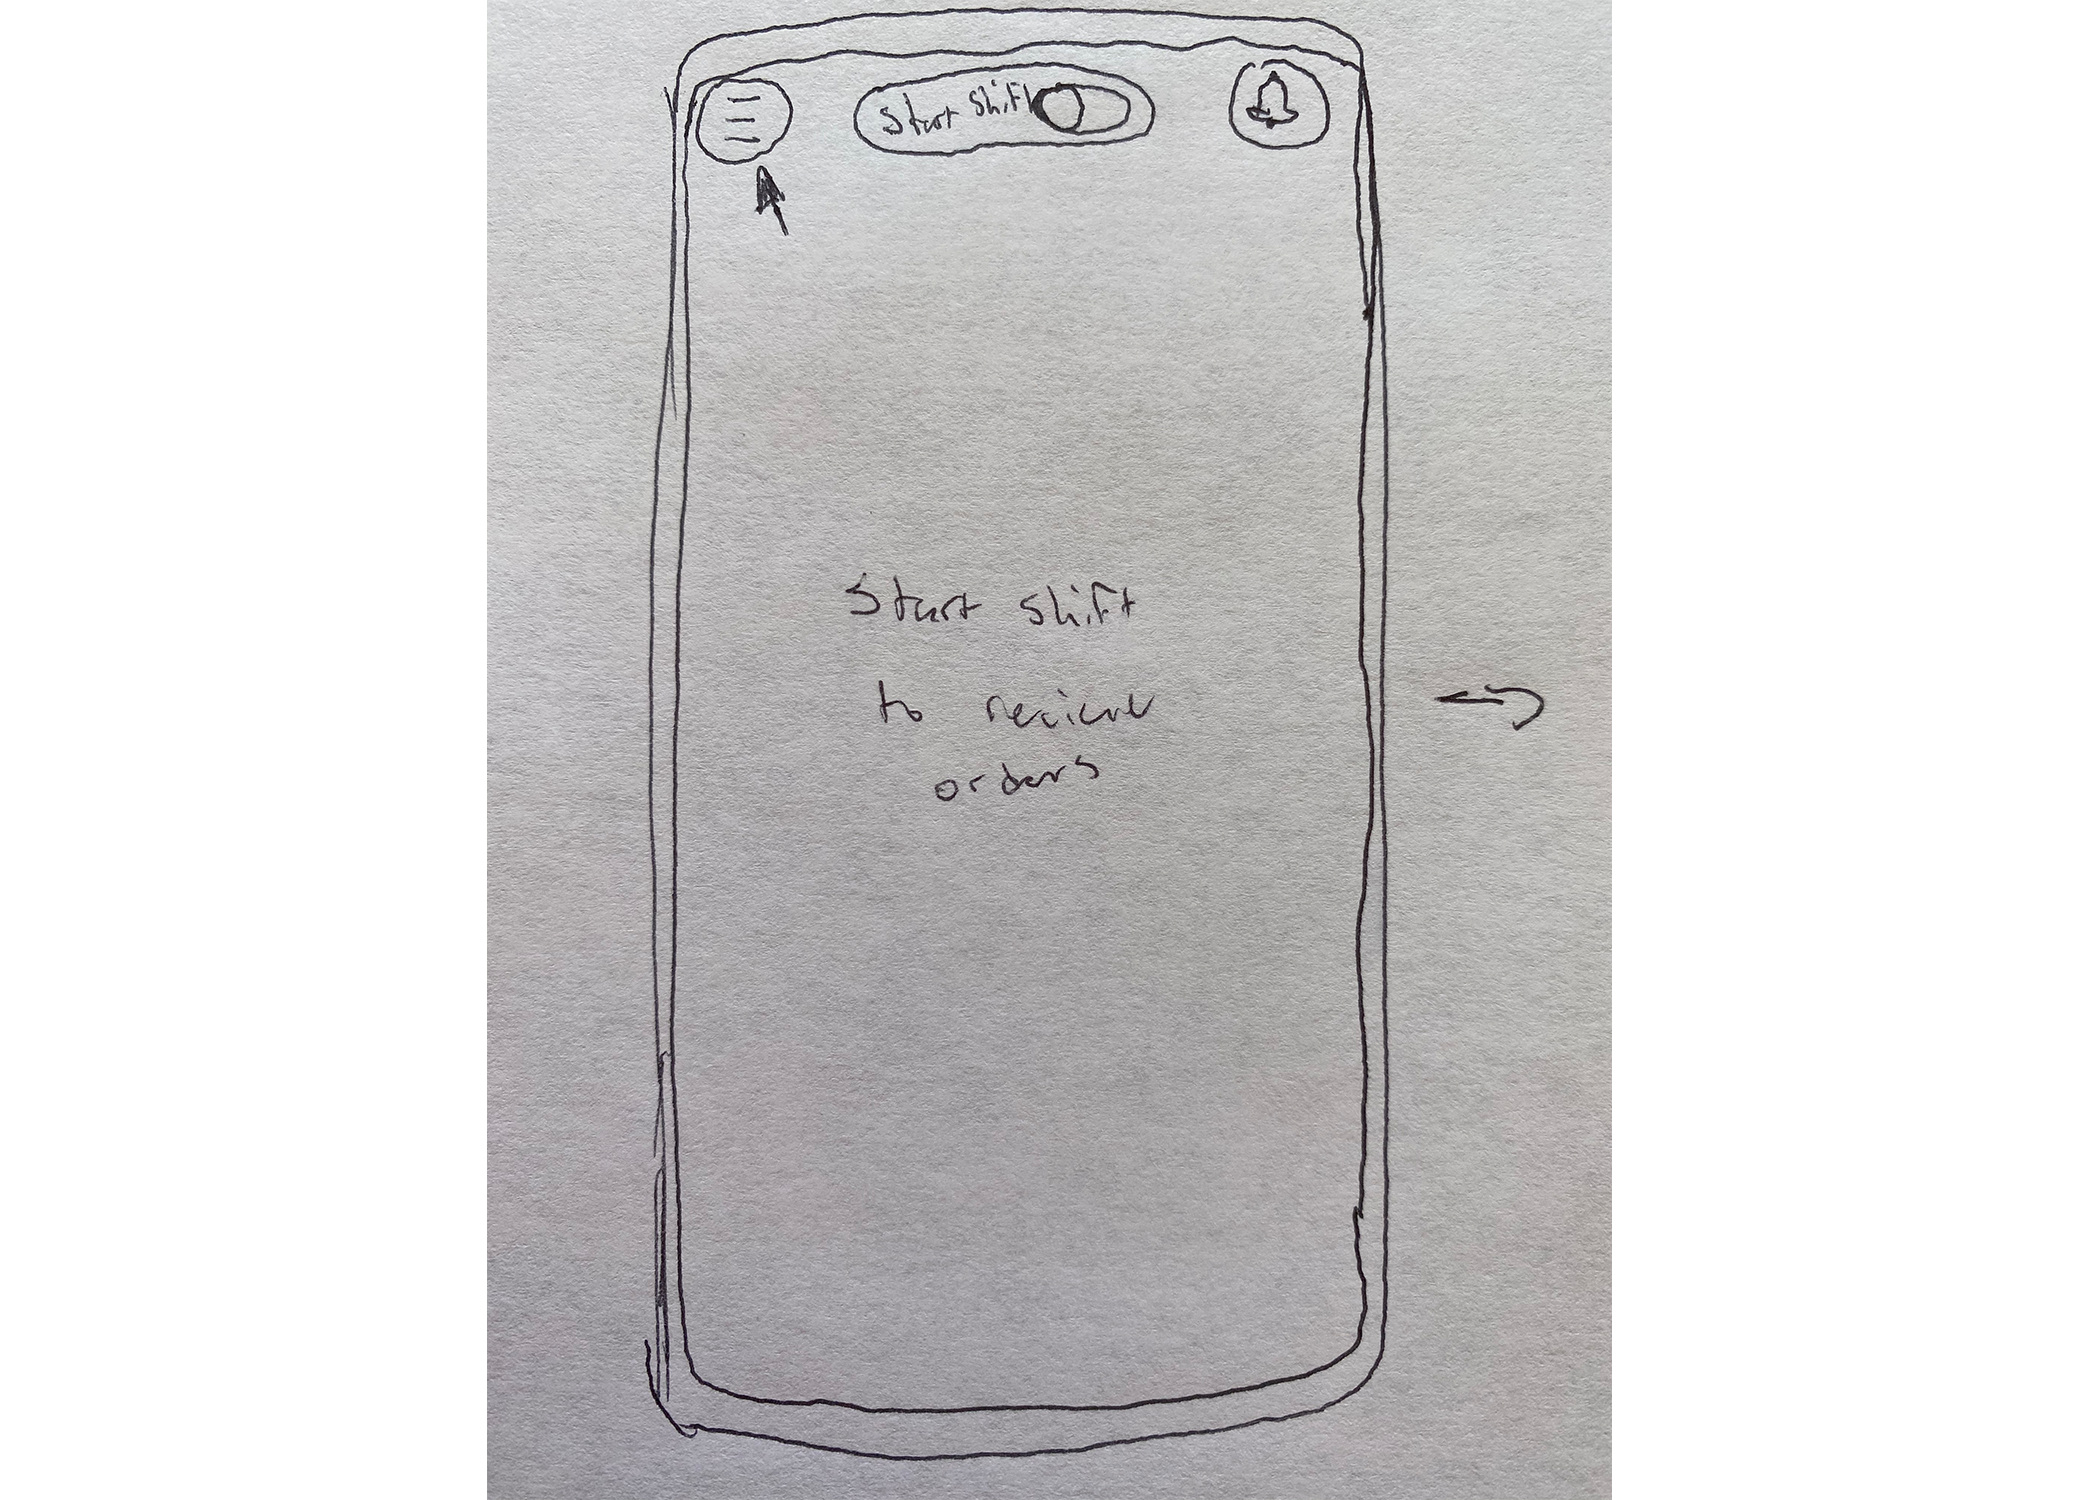 Start Shift
Start shift
to recieve
orders